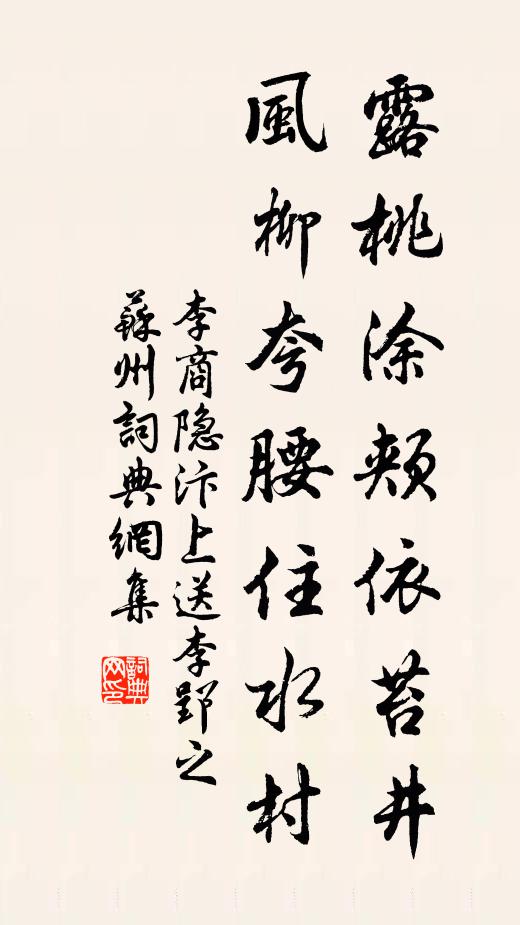 露桃涂頰依苔井
風柳夸腰住水村
李商隐汴上送李郢之
蘇州詞典網集
詞典
网印